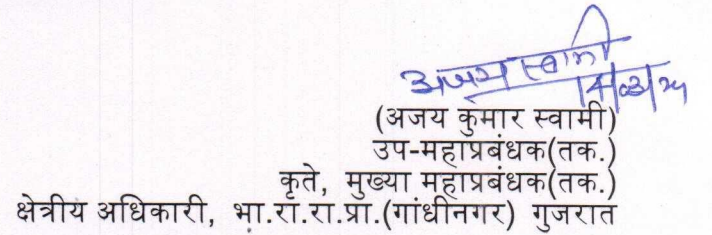 अजय स्वामी
14/03/24
(अजय कुमार स्वामी)
उप-महाप्रबंधक(तक.)
कृते, मुख्या महाप्रबंधक(तक.)
क्षेत्रीय अधिकारी, भा.रा.रा.प्रा.(गांधीनगर) गुजरात